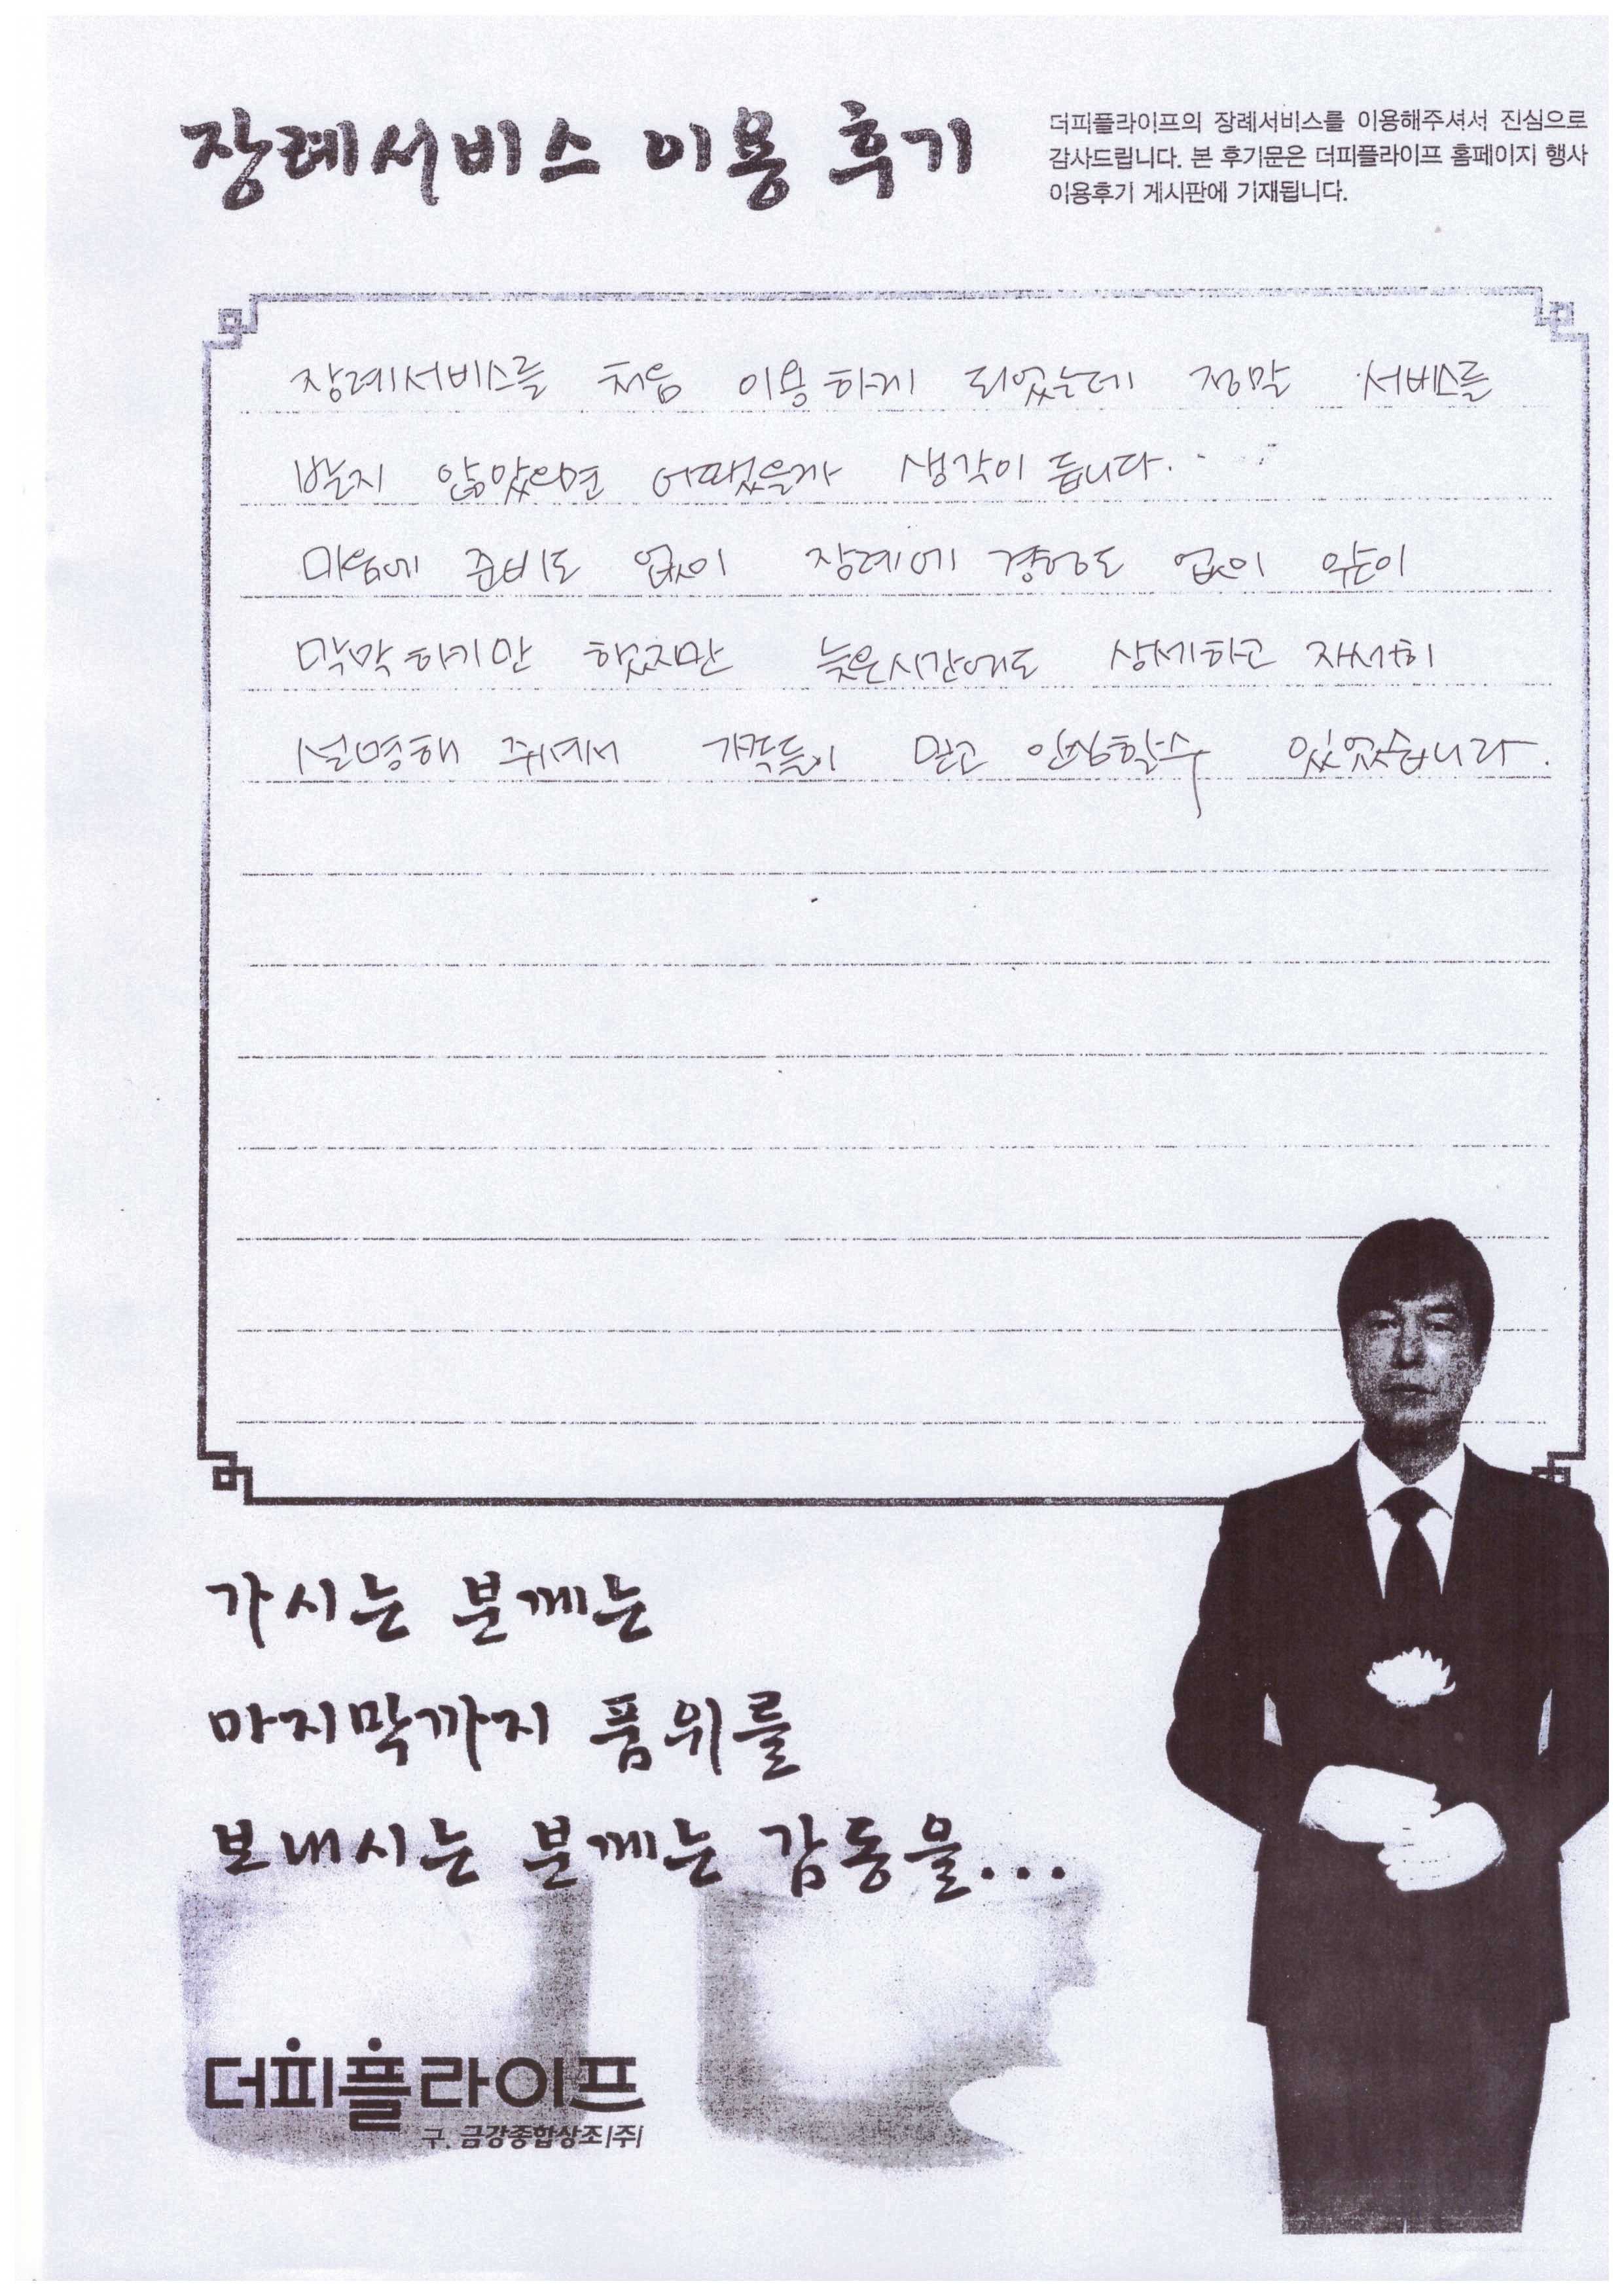 장례서비스 이용 후기
더피플라이프의 장례서비스를 이용해주셔서 진심으로
감사드립니다. 본 후기문은 더피플라이프 홈페이지 행사
이용후기 게시판에 기재됩니다.
장례서비스를 처음 이용하게 되었는데 정말 서비스를
받지 않았으면 어땠을까 생각이 듭니다.
마음에 준비도 없이 장례에 경험도 없이
막막하기만 했지만 늦은시간에도 상세하고 자세히
설명해 주셔서 가족들이 믿고 안심할수 있었습니다.
가시는 분께는
마지막까지 품위를
보내시는 분께는 감동을...
더피플라이프
구. 금강종합상조(주)